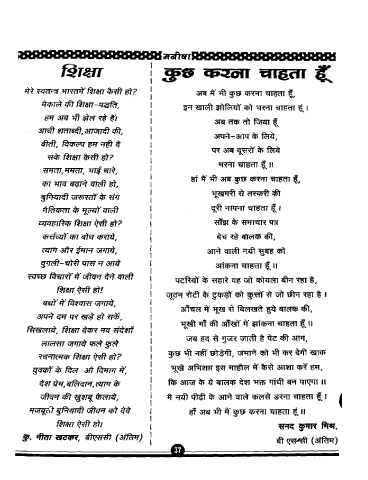 मनीषा
शिक्षा
मेरे स्वतन्त्र भारतमें शिक्षा कैसी हो?
मैकाले की शिक्षा-पद्धति,
हम अब भी झेल रहे हैं।
आधी शताब्दी,आजादी की,
बीती, विकल्प हम नही दे
सके शिक्षा कैसी हो?
समता,ममता, भाई चारे,
का भाव बढ़ाने वाली हो,
बुनियादी जरूरतों के संग
नैतिकता के मूल्यों वाली
व्यवहारिक शिक्षा ऐसी हो?
कर्त्तव्यों का बोध कराये,
त्याग और ईमान जगाये,
चुगली-चोरी पास न आवे
स्वच्छ विचारों में जीवन देने वाली
शिक्षा ऐसी हो!
बच्चों में विश्वास जगाये,
अपने दम पर खड़े हो सकें,
सिखलाये, शिक्षा देकर नय संदेशों
लालसा जगाये फले फूले
रचनात्मक शिक्षा ऐसी हो?
युवकों के दिल ओ दिमाग में,
देश प्रेम,बलिदान,त्याग के
जीवन की खुशबू फैलाये,
मजबूती बुनियादी जीवन को देवे
शिक्षा ऐसी हो।
कु. नीता खटकर, बीएससी (अंतिम)
कुछ करना चाहता हूँ
अब मैं भी कुछ करना चाहता हूँ,
इन खाली झोलियों को भरना चाहता हूं।
अब तक तो जिया हूँ
अपने-आप के लिये,
पर अब दूसरों के लिये
मरना चाहता हूँ॥
हां मैं भी अब कुछ करना चाहता हूँ,
भूखमरी से तस्करी की
दूरी नापना चाहता हूँ।
साँझ के समाचार पत्र
बेच रहे बालक की,
आने वाली नयी सुबह को
आंकना चाहता हूँ॥
पटरियों के सहारे वह जो कोयला बीन रहा है,
जूठन रोटी के टुकड़ों को कुत्तों से जो छीन रहा है।
आँचल में भूख से बिलखते हुये बालक की,
भूखी माँ की आँखों में झांकना चाहता हूँ॥
जब हद से गुजर जाती है पेट की आग,
कुछ भी नहीं छोड़ेगी, जमाने को भी कर देगी खाक
भूखे अभिशप्त इस माहौल में कैसे आशा करें हम,
कि आज के ये बालक देश भक्त गांधी बन पाएगा॥
मै नयी पीढ़ी के आने वाले कलसे डरना चाहता हूँ।
हाँ अब भी मैं कुछ करना चाहता हूं॥
सनद कुमार मिश्र,
बी एससी (अंतिम)
37